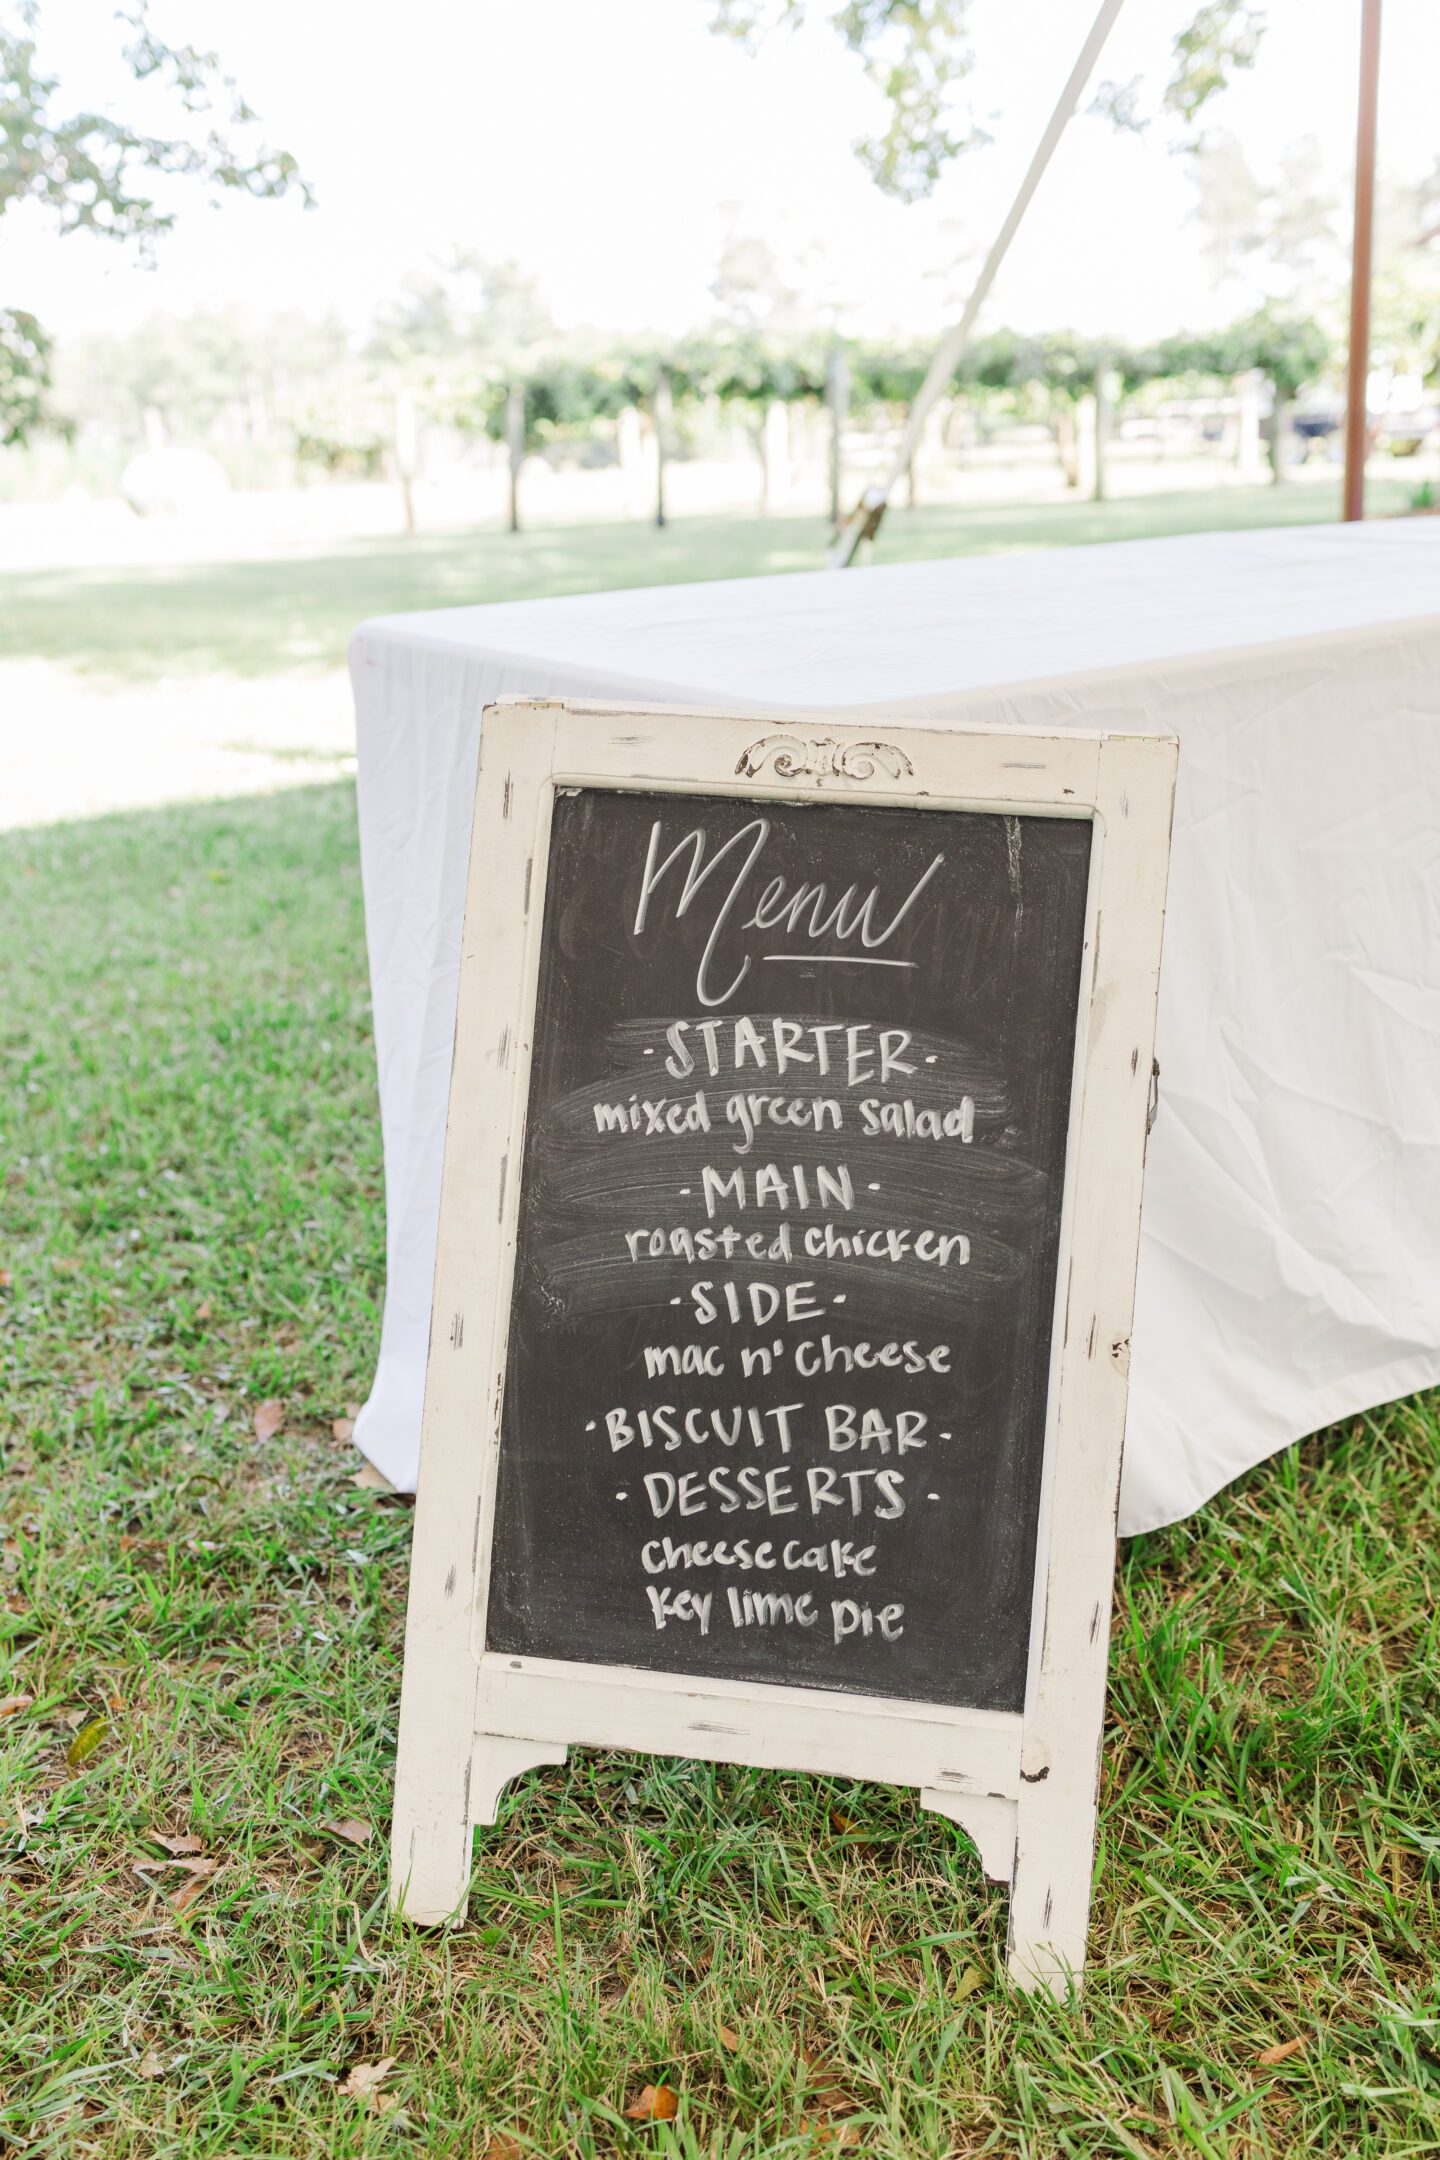 Menu
·STARTER·
mixed green salad
·MAIN·
roasted chicken
·SIDE·
mac n' cheese
·BISCUIT BAR·
·DESSERTS·
cheesecake
key lime pie